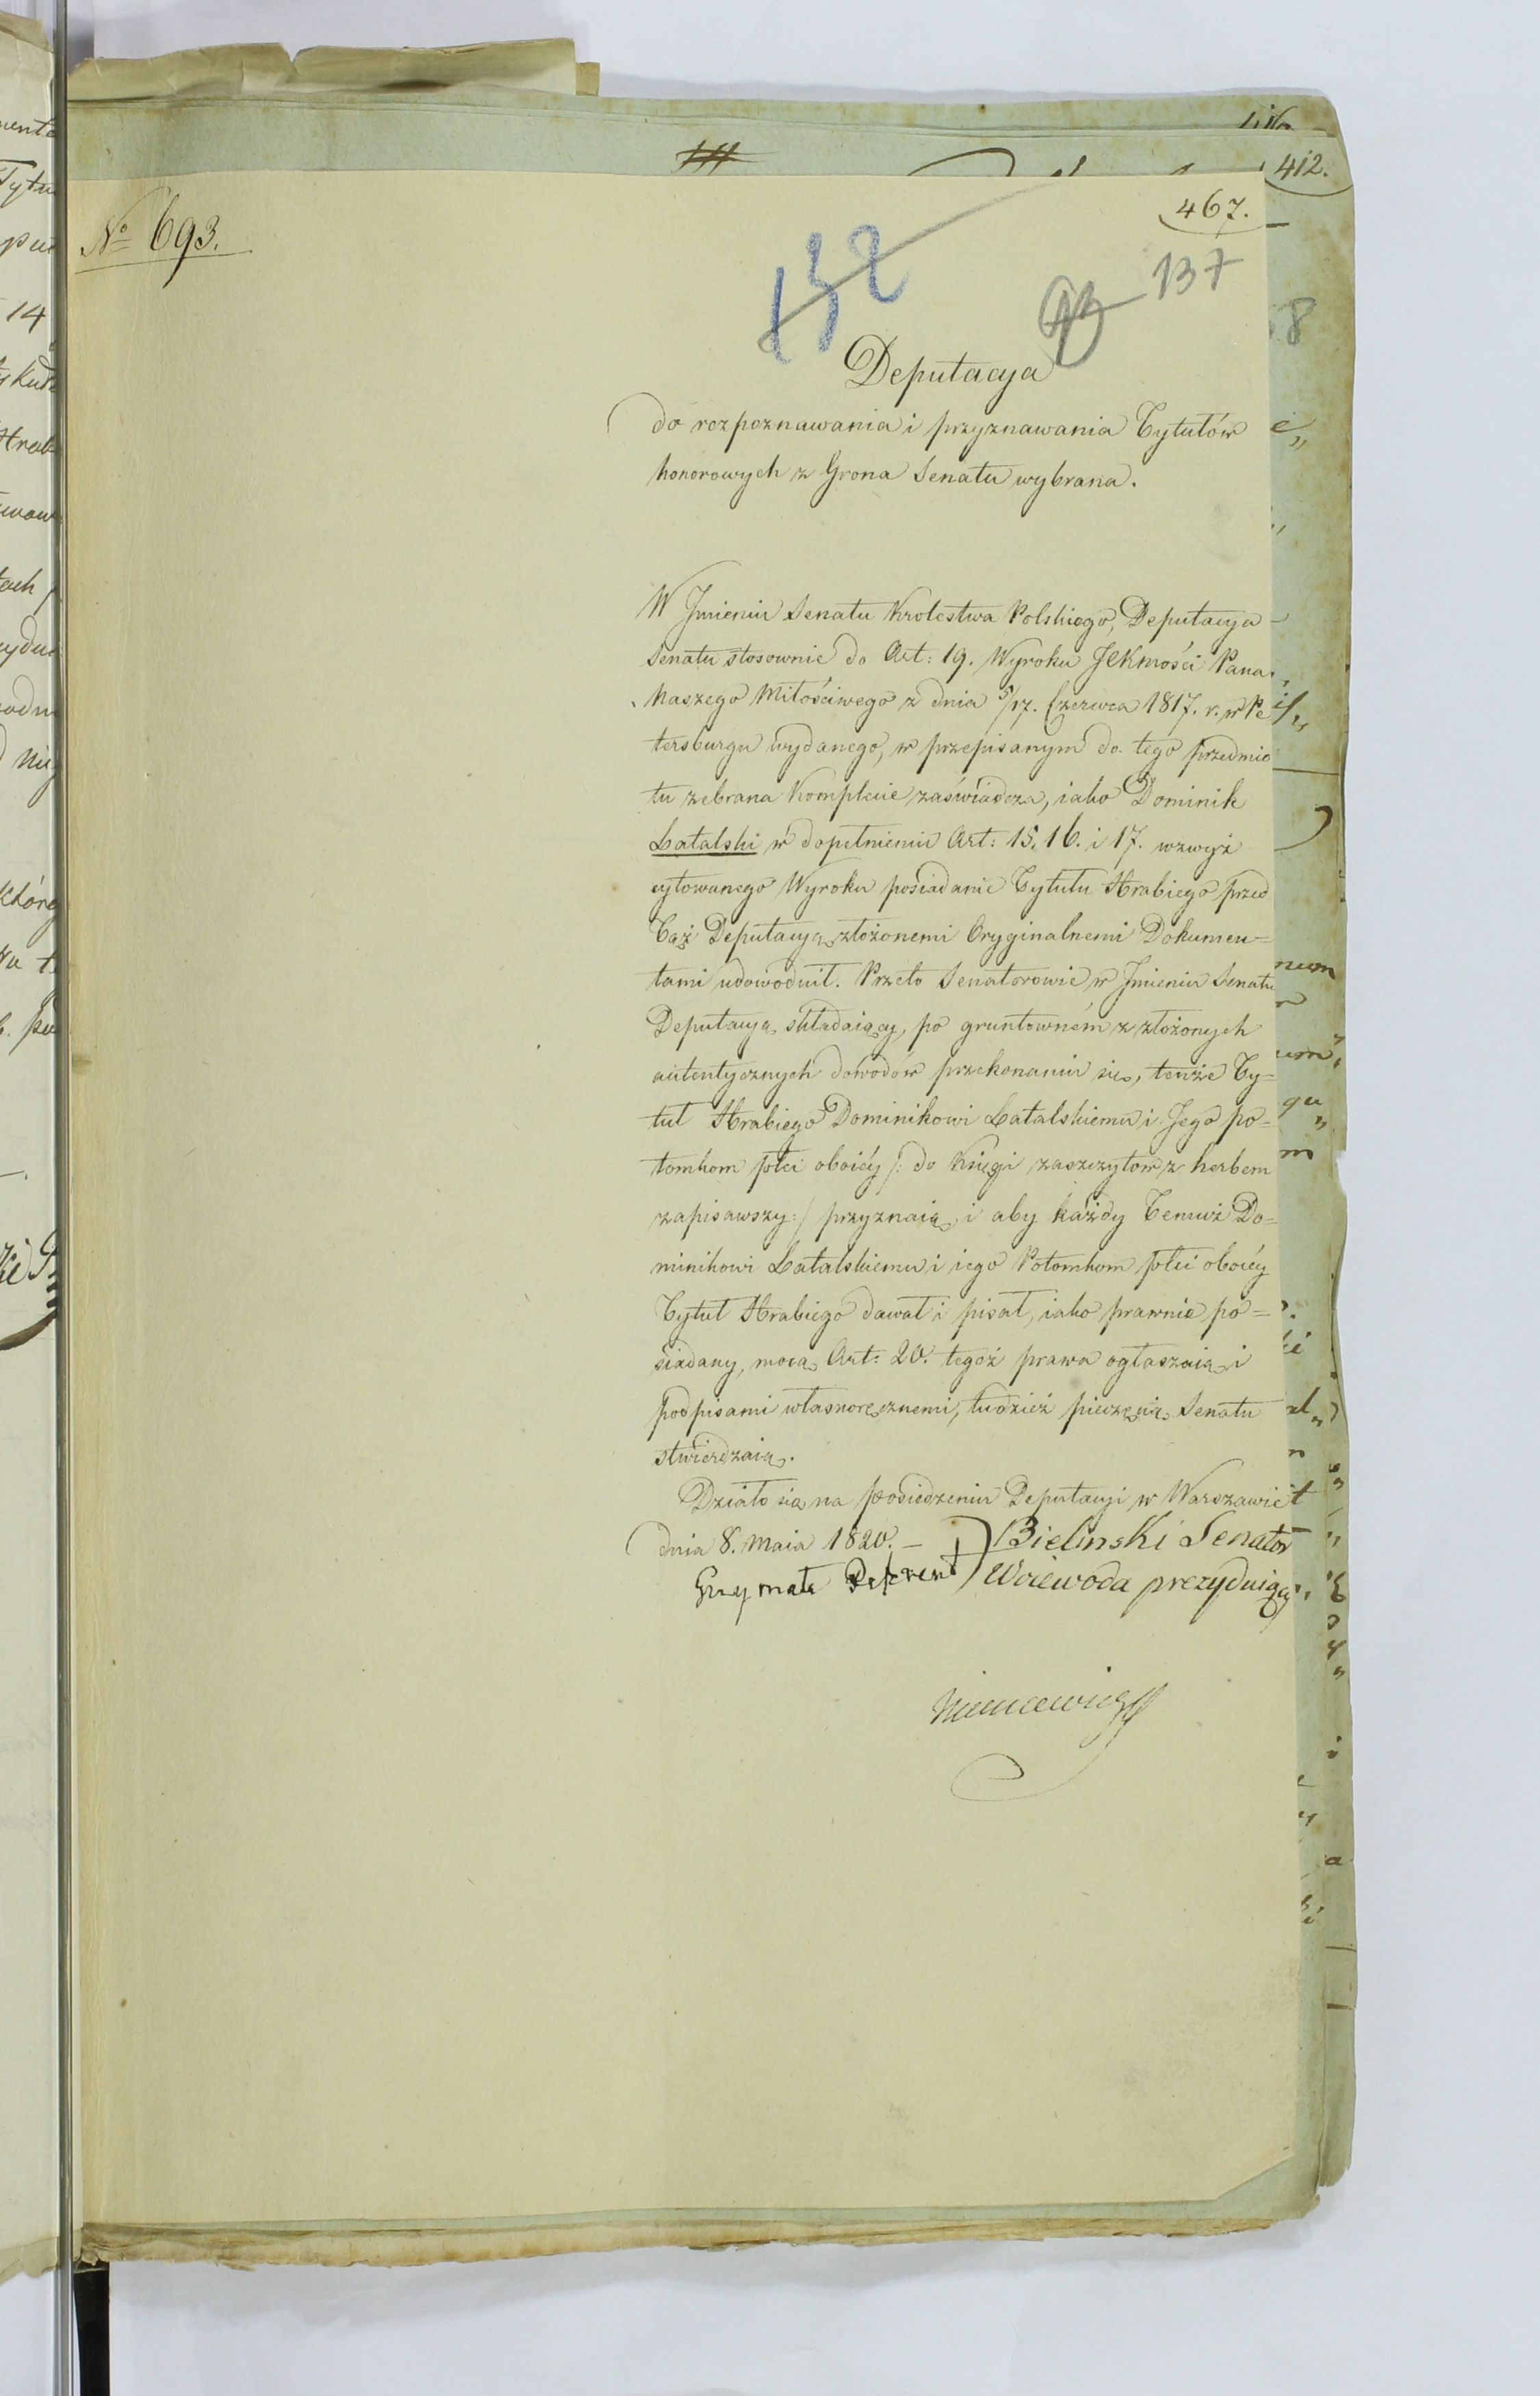 412.
467.
No 693.
132
137
Deputacya
do rozpoznawania i przyznawania Tytułów
honorowych z Grona Senatu wybrana.
W Jmieniu Senatu Krolestwa Polskiego, Deputacya
Senatu stosownie do Art: 19. Wyroku JEKmości Pana
Naszego Miłościwego z dnia 5/17. Czerwca 1817. r. w Pe
tersburgu wydanego, w przepisanym do tego przedmio
tu zebrana Komplecie zaświadcza, iako Dominik
Łatalski w dopełnieniu Art: 15, 16. i 17. wzwyż
cytowanego Wyroku posiadanie Tytułu Hrabiego przed
Taż Deputacyą złożonemi Oryginalnemi Dokumen=
tami udowodnił. Przeto Senatorowie w Jmieniu Senatu
Deputacyą składaiący, po gruntowném z złożonych
autentycznych dowodów przekonaniu się, tenże Ty=
tuł Hrabiego Dominikowi Łatalskiemu i Jego po=
tomkom płci oboiéy /: do Księgi zaszczytów z herbem
zapisawszy :/ przyznaią, i aby każdy Temuż Do=
minikowi Łatalskiemu i iego Potomkom płci oboiéy
Tytuł Hrabiego dawał i pisał, iako prawnie po=
siadany, mocą Art: 20. tegoż prawa ogłaszaią i
podpisami własnoręcznemi, tudzież pieczęcią Senatu
stwierdzaią.
Działo się na posiedzeniu Deputacyi w Warszawie
dnia 8. Maia 1820. — Bielinski Senator
Grzymała Referend Woiewoda prezyduiący
Niemcewicz